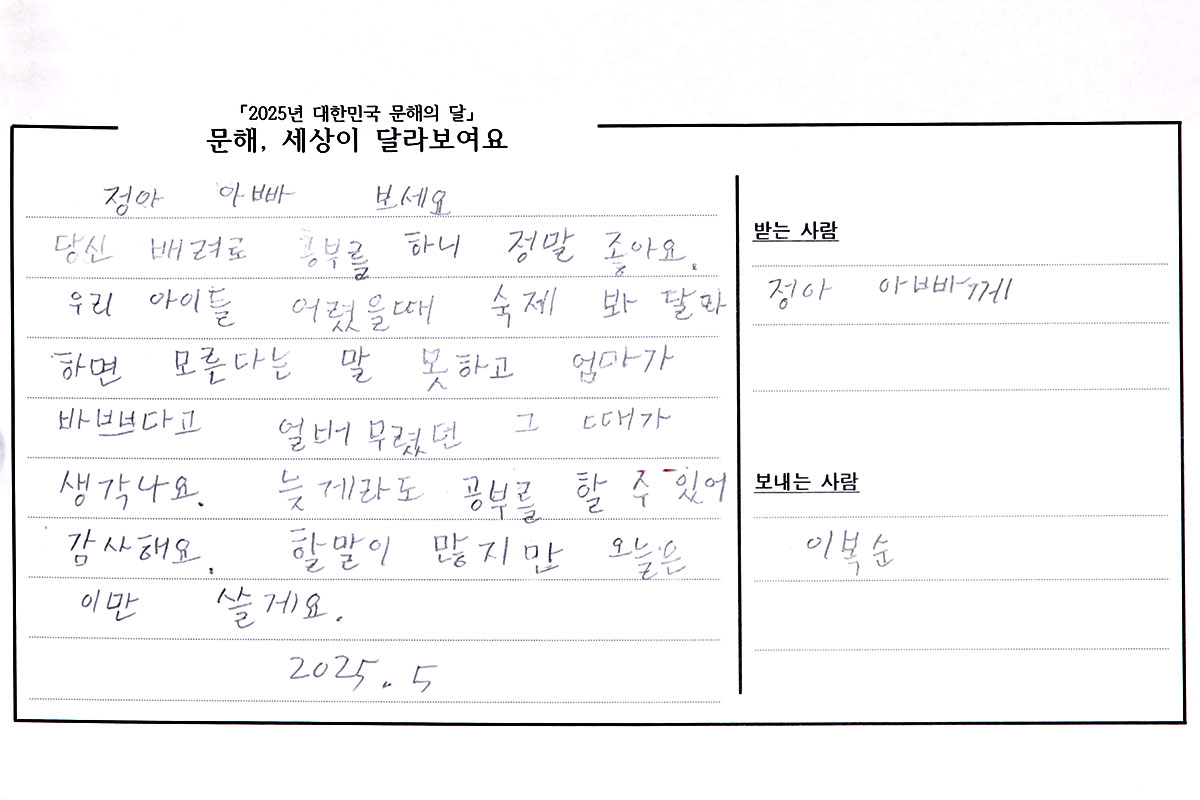 「2025년 대한민국 문해의 달」
문해, 세상이 달라보여요
정아 아빠 보세요
당신 배려로 공부를 하니 정말 좋아요.
우리 아이들 어렸을때 숙제 봐 달라
하면 모른다는 말 못하고 엄마가
바쁘다고 얼버무렸던 그 때가
생각나요. 늦게라도 공부를 할 수 있어
감사해요. 할말이 많지만 오늘은
이만 쓸게요.
2025. 5
받는 사람
정아 아빠께
보내는 사람
이복순